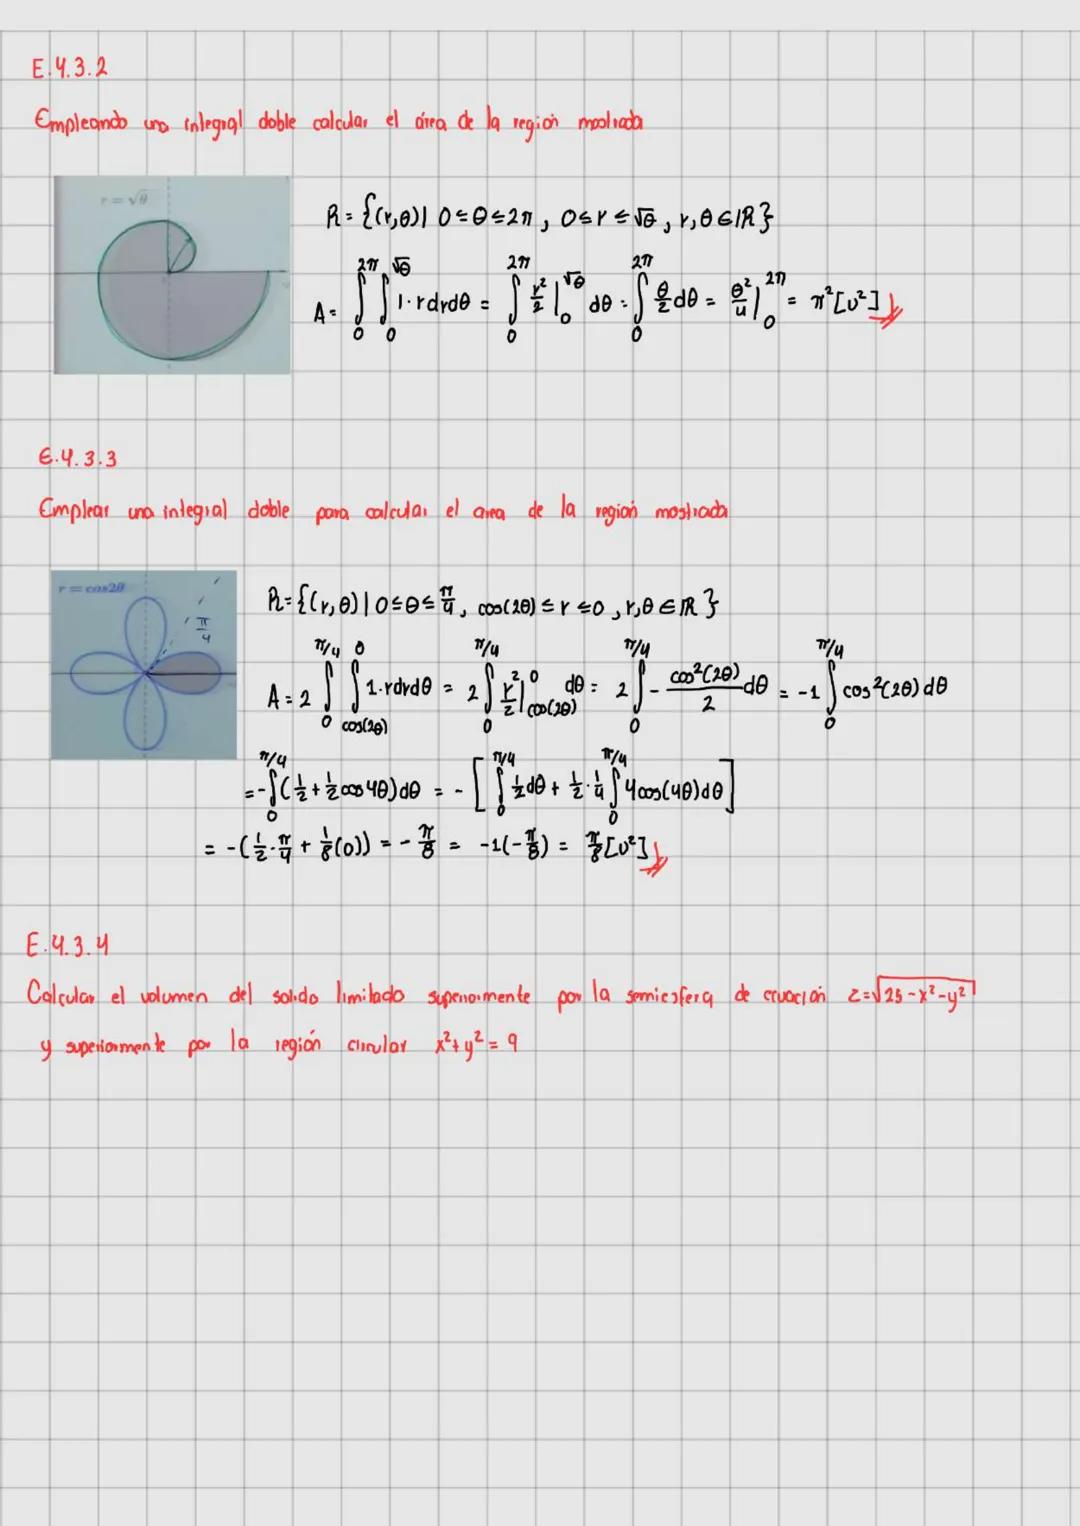 E.4.3.2
Empleando una integral doble calcular el área de la región mostrada
r = √θ
R = {(r,θ)| 0≤θ≤2π, 0≤r≤√θ, r,θ∈ℝ}
A = ∫₀^{2π} ∫₀^{√θ} 1·r dr dθ = ∫₀^{2π} r²/2 |₀^{√θ} dθ = ∫₀^{2π} θ/2 dθ = θ²/4 |₀^{2π} = π² [u²]
E.4.3.3
Emplear una integral doble para calcular el area de la región mostrada
r = cos2θ
π/4
R = {(r,θ)| 0≤θ≤π/4, cos(2θ)≤r≤0, r,θ∈ℝ}
A = 2 ∫₀^{π/4} ∫_{cos(2θ)}^{0} 1·r dr dθ = 2 ∫₀^{π/4} r²/2 |_{cos(2θ)}^{0} dθ = 2 ∫₀^{π/4} - cos²(2θ)/2 dθ = -1 ∫₀^{π/4} cos²(2θ) dθ
= -∫₀^{π/4} (1/2 + 1/2 cos 4θ) dθ = - [ ∫₀^{π/4} 1/2 dθ + 1/2 · 1/4 ∫₀^{π/4} 4cos(4θ) dθ ]
= -(1/2 · π/4 + 1/8 (0)) = - π/8 = -1(-π/8) = π/8 [u²]
E.4.3.4
Calcular el volumen del solido limitado superiormente por la semiesfera de ecuación z=√25-x²-y²
y superiormente por la región circular x²+y² = 9